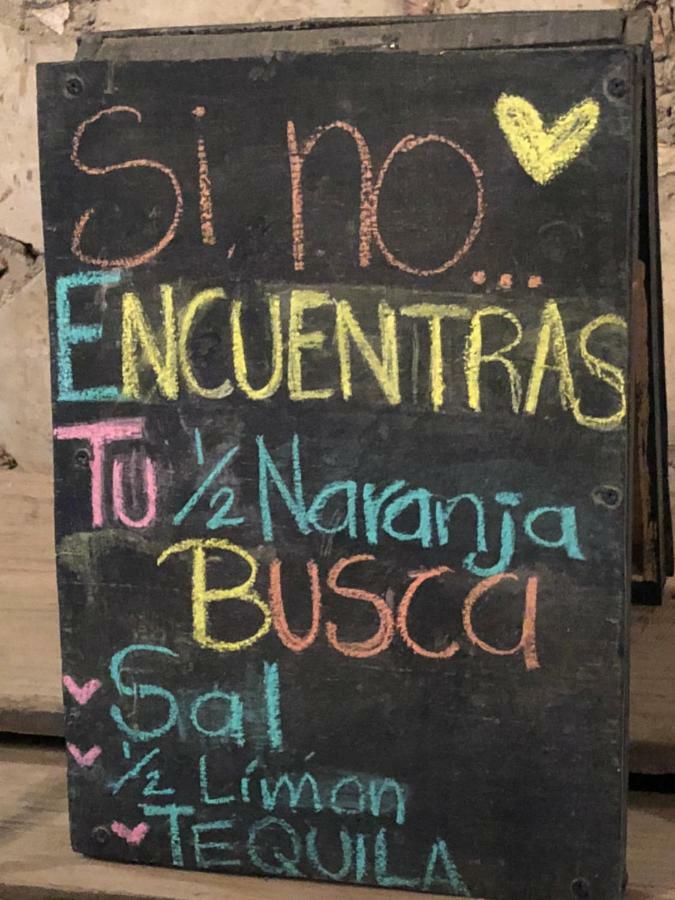 Si no...
ENCUENTRAS
TU 1/2 Naranja
BUSCA
Sal
1/2 Límón
TEQUILA